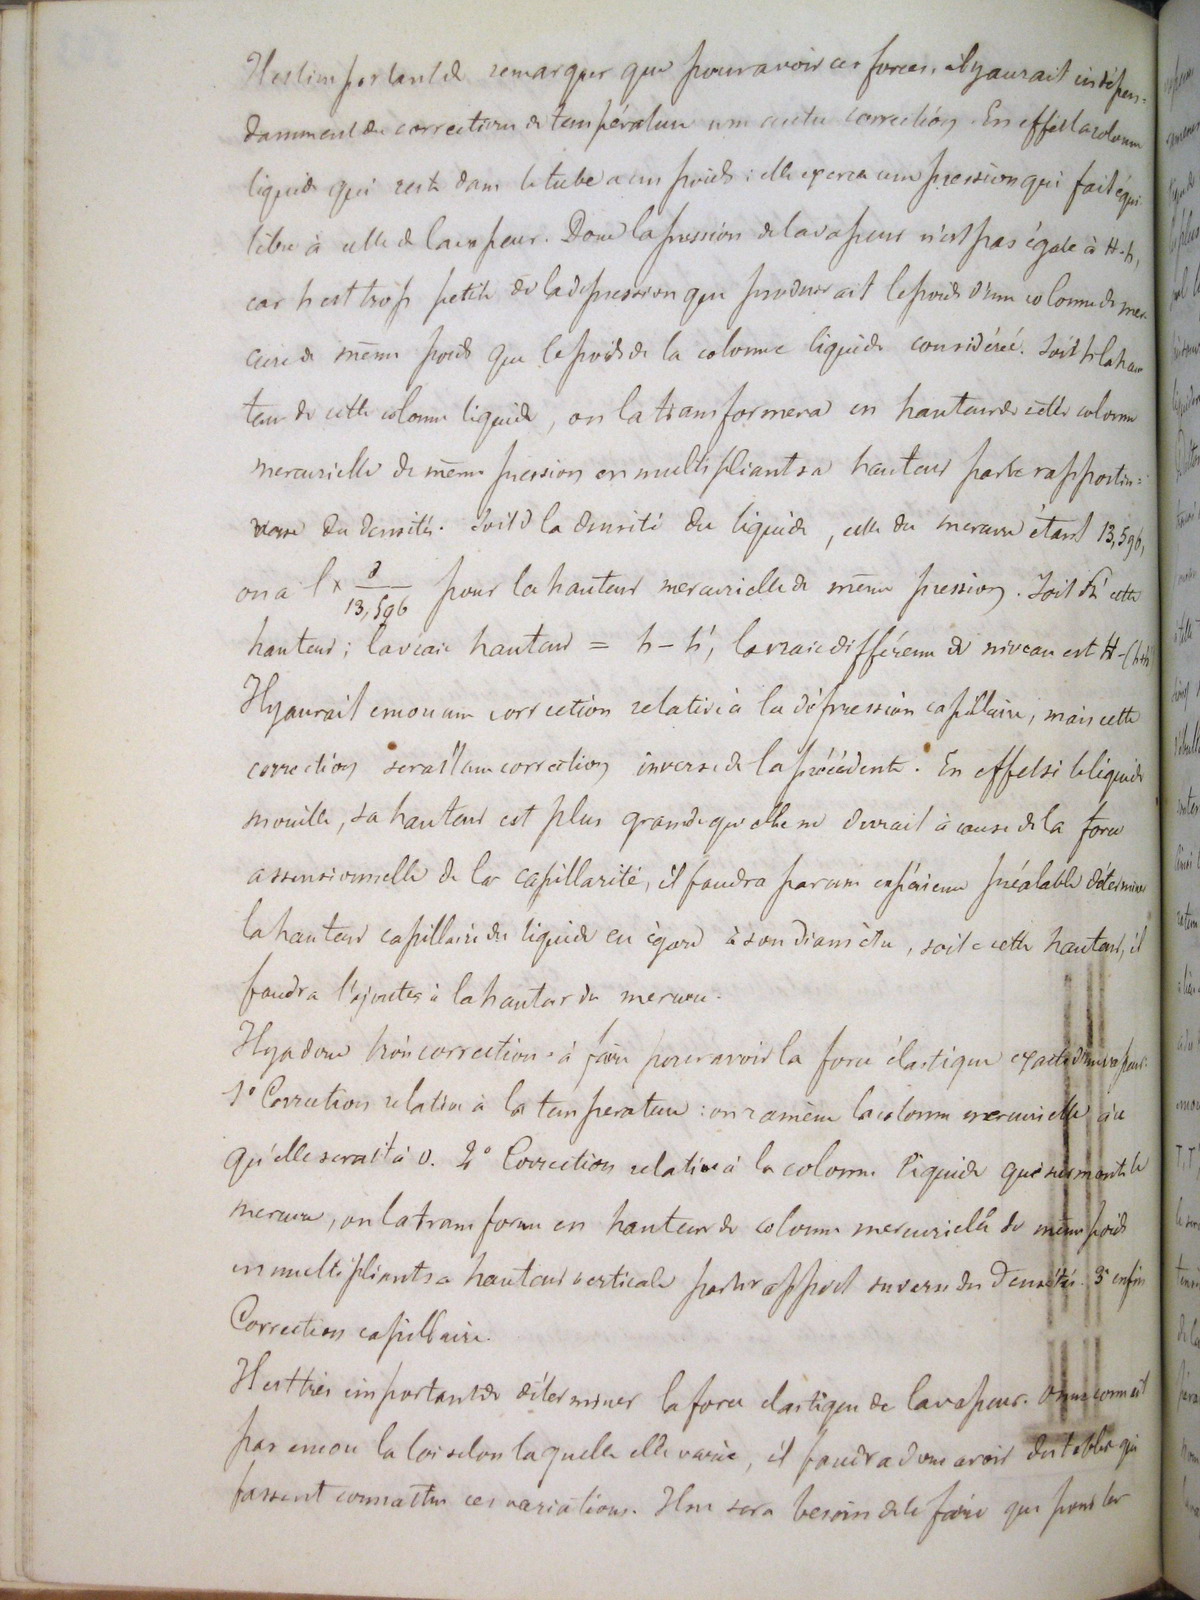 Il est important de remarquer que pour avoir ces forces, il y aurait indépen-
damment des corrections de température une autre correction. En effet la colonne
liquide qui reste dans le tube a un poids : elle exerce une pression qui fait équi-
libre à celle de la vapeur. Donc la pression de la vapeur n'est pas égale à H-h,
car h est trop petit de la dépression que produirait le poids d'une colonne de mer-
cure de même poids que le poids de la colonne liquide considérée. Soit l la hau
teur de cette colonne liquide, on la transformera en hauteur de cette colonne
mercurielle de même pression en multipliant sa hauteur par le rapport in=
verse des densités. Soit d la densité du liquide, celle du mercure étant 13,596,
on a l × d/13,596 pour la hauteur mercurielle de même pression. Soit h' cette
hauteur ; la vraie hauteur = h - h', la vraie différence de niveau est H-(h+h')
Il y aurait encore une correction relative à la dépression capillaire, mais cette
correction serait une correction inverse de la précédente. En effet si le liquide
mouille, sa hauteur est plus grande qu'elle ne devrait à cause de la force
assensionnelle de la capillarité, il faudra par une expérience préalable déterminer
la hauteur capillaire du liquide eu égard à son diamètre, soit c cette hauteur, il
faudra l'ajouter à la hauteur du mercure.
Il y a donc trois corrections à faire pour avoir la force élastique exacte d'une vapeur.
1° Correction relative à la température : on ramène la colonne mercurielle à ce
qu'elle serait à 0. 2° Correction relative à la colonne liquide qui surmonte le
mercure, on la transforme en hauteur de colonne mercurielle de même poids
en multipliant sa hauteur verticale par le rapport inverse des densités. 3° enfin
Correction capillaire.
Il est très important de déterminer la force élastique de la vapeur. On ne connait
pas encore la loi selon laquelle elle varie, il faudra donc avoir des tables qui
fassent connaître ces variations. Il ne sera besoin de le faire que pour les